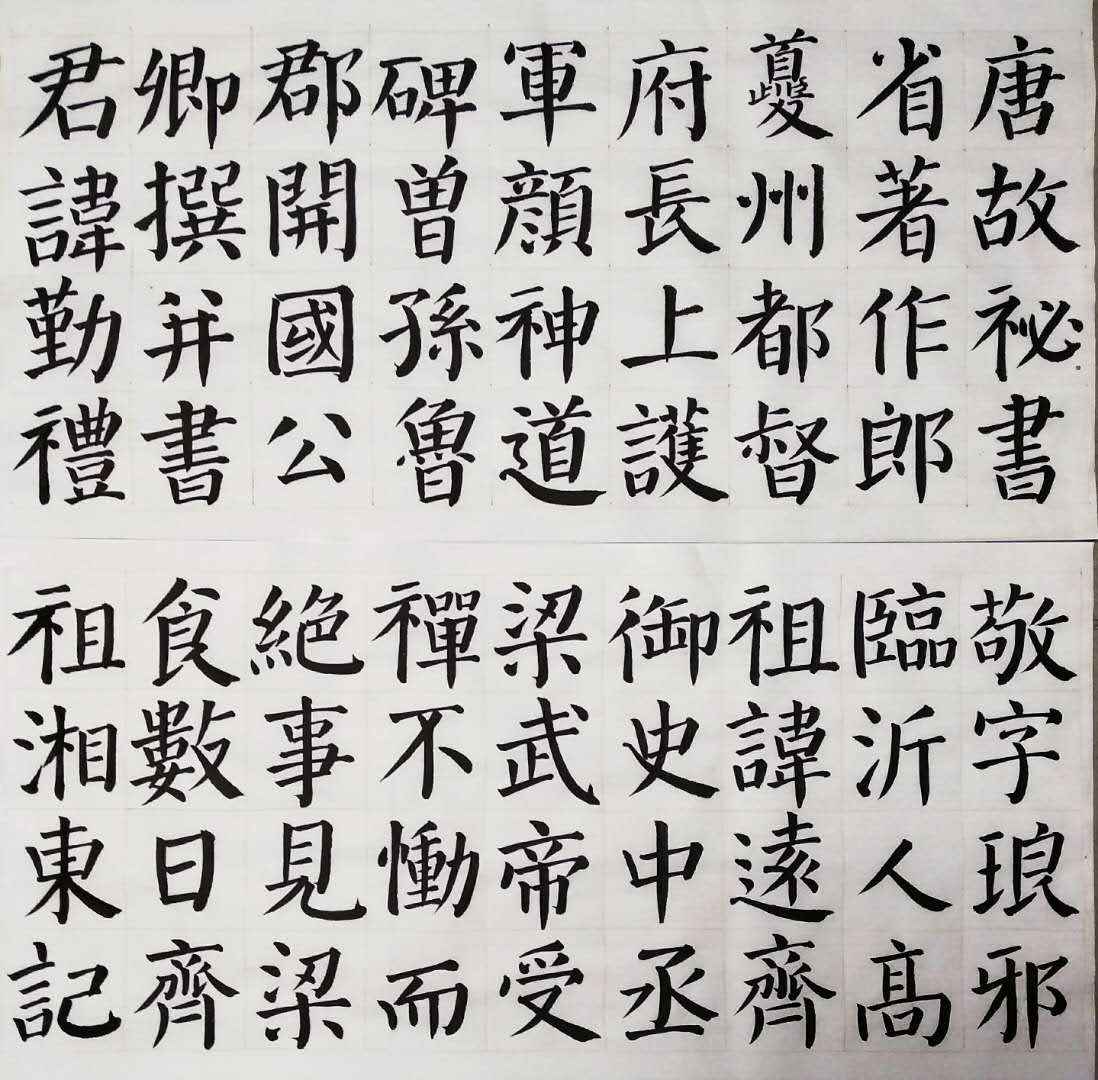 唐故祕書
省著作郎
夔州都督
府長上護
軍顏神道
碑曾孫魯
郡開國公
卿撰并書
君諱勤禮
敬字琅邪
臨沂人高
祖諱遠齊
御史中丞
梁武帝受
禪不慟而
絕事見梁
食數日齊
祖湘東記